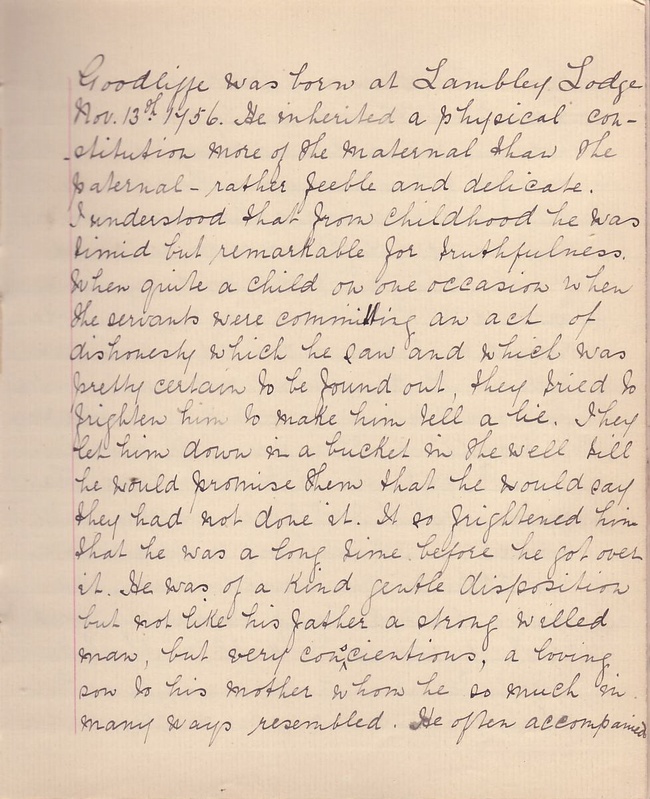 Goodliffe was born at Lambley Lodge
Nov. 13th 1756. He inherited a physical con-
-stitution more of the maternal than the
paternal - rather feeble and delicate.
I understood that from childhood he was
timid but remarkable for truthfulness.
When quite a child on one occasion when
the servants were committing an act of
dishonesty which he saw and which was
pretty certain to be found out, they tried to
frighten him to make him tell a lie. They
let him down in a bucket in the well till
he would promise them that he would say
they had not done it. It so frightened him
that he was a long time before he got over
it. He was of a kind gentle disposition
but not like his father a strong willed
man, but very conscientious, a loving
son to his mother whom he so much in
many ways resembled. He often accompanied